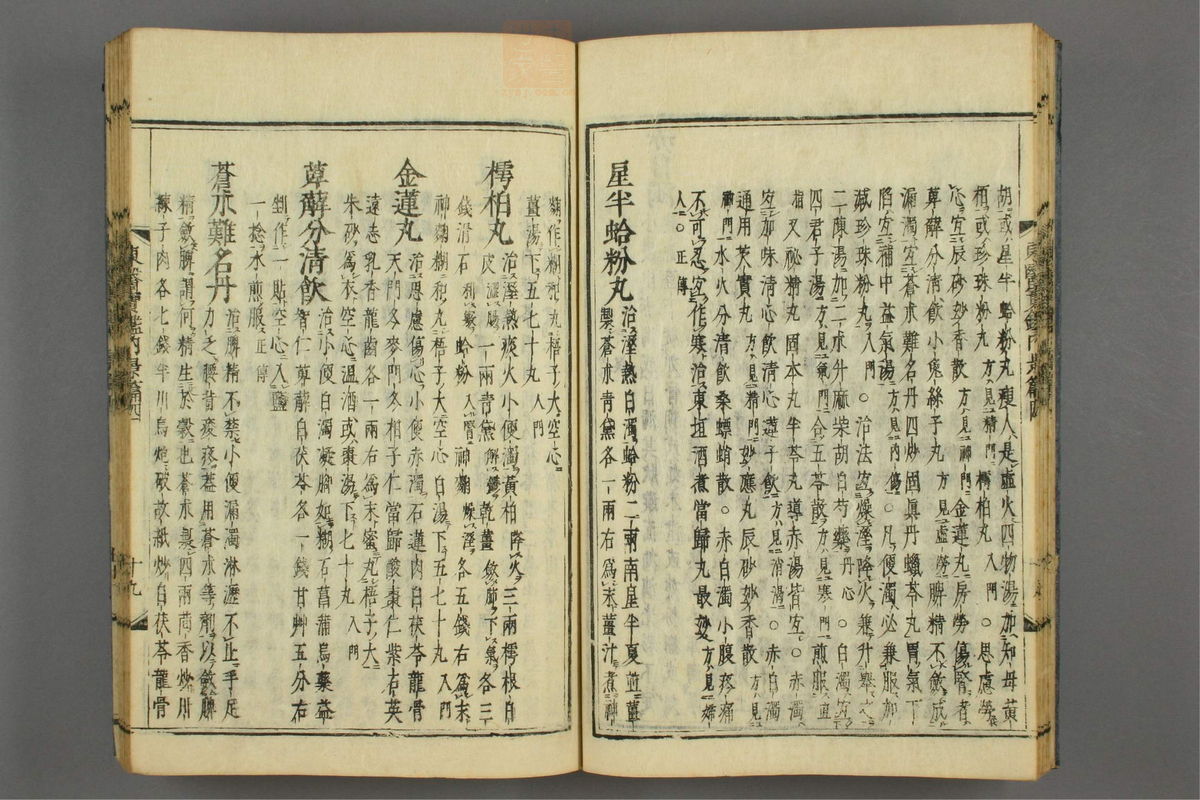 胡或星半蛤粉丸瘦人是虛火四物湯加知母黃
栢或珍珠粉丸方見精門樗柏丸入門○思慮勞
心宜辰砂妙香散方見神門金蓮丸房勞傷腎者
萆薢分清飮小兔絲子丸方見虛勞脾精不斂成
漏濁宜蒼朮難名丹四炒固眞丹蠟苓丸胃氣下
陷宜補中益氣湯方見內傷○治法宜燥濕降火兼升擧之
滅珍珠粉丸入門○凡便濁必兼服加
二陳湯加二朮升麻柴胡白芍藥丹心○白濁宜
四君子湯方見氣門合五苓散方見寒門煎服宜
相又秘精丸固本丸半苓丸導赤湯皆宜○赤濁
宜加味淸心飮淸心蓮子飮方見消渴○赤白濁
通用芡實丸方見精門妙應丸辰砂妙香散方見
神門水火分淸飮桑螵蛸散○赤白濁小腹疼痛
不可忍宜作寒治東垣酒煮當歸丸最妙方見婦
人○正傳
星半蛤粉丸治濕熱白濁蛤粉二兩南星半夏並薑
製蒼朮靑黛各一兩右爲末薑汁煮神
麴作糊和丸梧子大空心
薑湯下五七十丸入門
樗柏丸治濕熱痰火小便濁黃柏降火三兩樗根白
皮澁腸一兩靑黛解鬱乾薑斂肺下氣各三
錢滑石利竅蛤粉入腎神麴燥濕各五錢右爲末
神麴糊和丸梧子大空心白湯下五七十丸入門
金蓮丸治思慮傷心小便赤濁石蓮肉白茯苓龍骨
天門冬麥門冬柏子仁當歸酸棗仁紫石英
遠志乳香龍齒各一兩右爲末蜜丸梧子大
朱砂爲衣空心溫酒或棗湯下七十丸入門
萆薢分淸飮治小便白濁凝脚如糊石菖蒲烏藥益
智仁萆薢白茯苓各一錢甘艸五分右
剉作一貼空心入鹽
一捻水煎服正傳
蒼朮難名丹治脾精不禁小便漏濁淋瀝不止手足
力乏腰背痠疼盖用蒼朮等劑以斂脾
精斂脾謂何精生於穀也蒼朮製四兩茴香炒川
練子肉各七錢半川烏炮破故紙炒白茯苓龍骨
東醫寶鑑內景篇四
十九